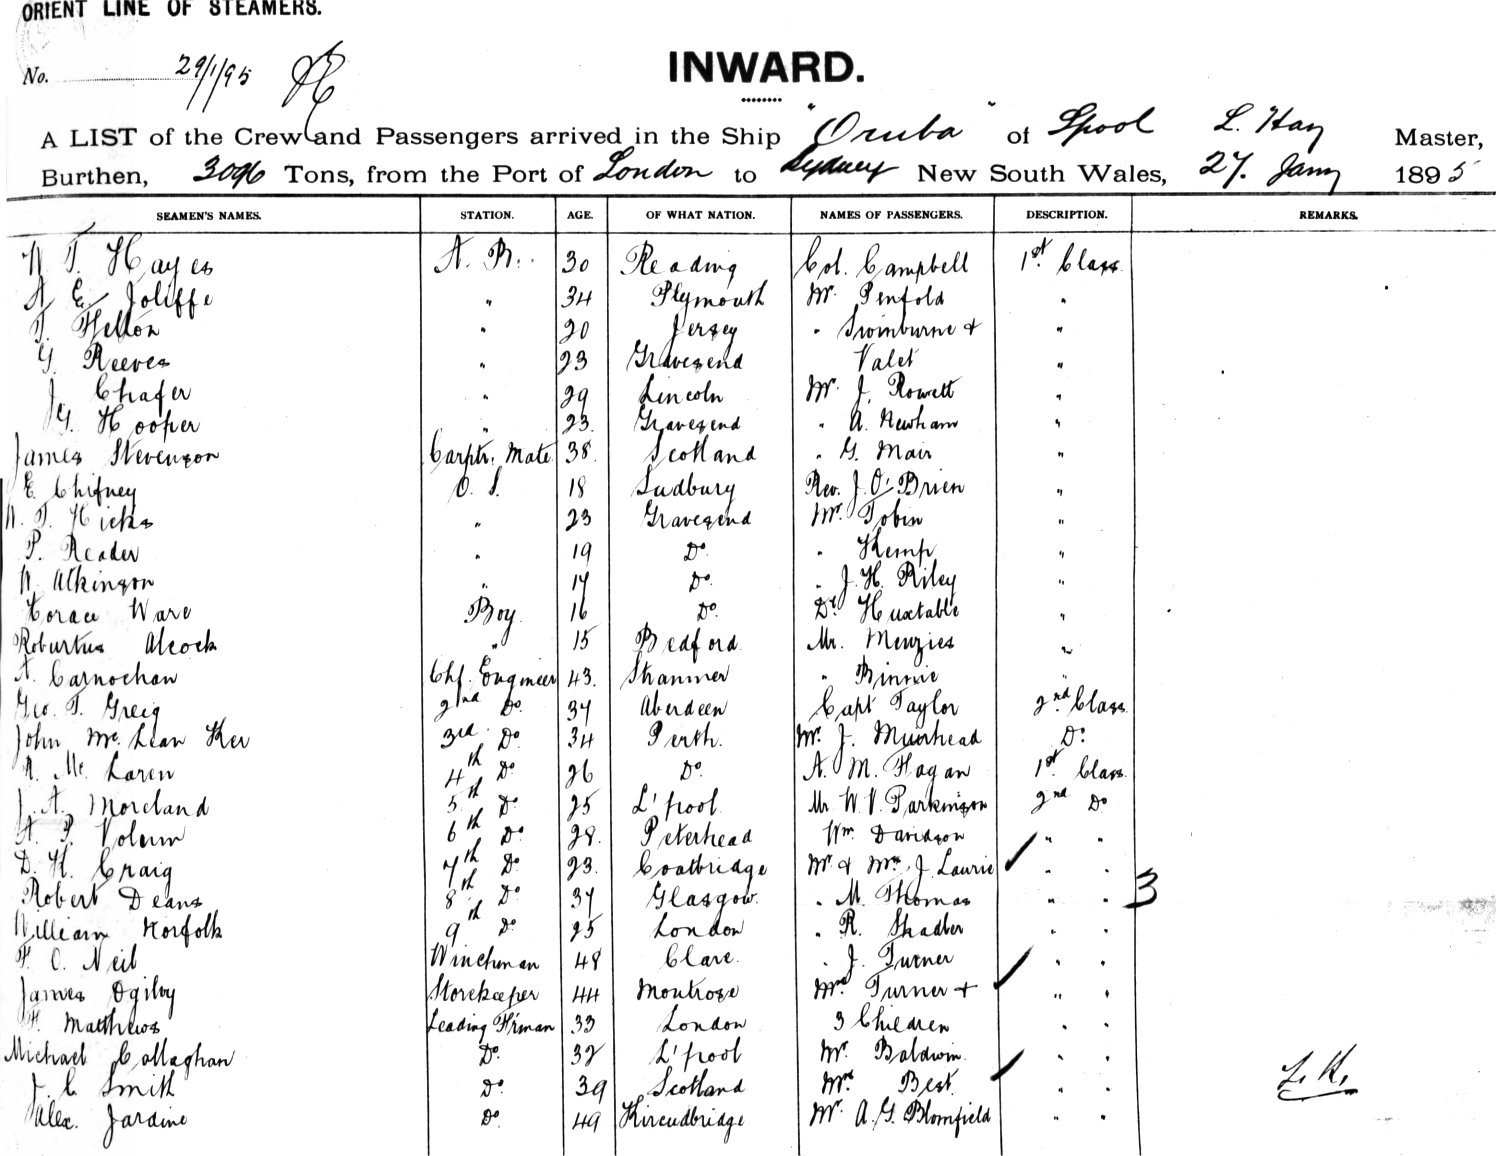 ORIENT LINE OF STEAMERS.
No. 29/1/95
INWARD.
A LIST of the Crew and Passengers arrived in the Ship "Oruba" of Lpool L. Hay Master,
Burthen, 3096 Tons, from the Port of London to Sydney New South Wales, 27. Jany 1895
SEAMEN'S NAMES. STATION. AGE. OF WHAT NATION. NAMES OF PASSENGERS. DESCRIPTION. REMARKS.
W. T. Hayes A. B. 30 Reading Col. Campbell 1st Class
A E Joliffe " 34 Plymouth Mr. Penfold "
T. Helton " 20 Jersey " Swinburne + "
G. Reeves " 23 Gravesend Valet "
J. Chafer " 29 Lincoln Mr. J. Rowett "
G. Hooper " 23. Gravesend " A. Newham "
James Stevenson Carptr. Mate 38. Scotland " G. Mair "
E. Chifney O. S. 18 Sudbury Rev. J. O'Brien "
W. T. Hicks " 23 Gravesend Mr. Tobin "
P. Reader " 19 Do. " Kemp "
W. Atkinson " 17 Do. " J. H. Riley "
Horace Ware Boy. 16 Do. Dr. Huxtable "
Roburtus Alcock " 15 Bedford. Mr. Menzies "
A. Carnochan Chf. Engineer 43. Stranraer " Binnie "
Geo. T. Greig 2nd Do. 37 Aberdeen Capt Taylor 2nd Class
John Mc. Lean Ker 3rd Do. 34 Perth. Mr. J. Muirhead Do.
A. Mc. Laren 4th Do 26 Do. A. M. Fagan 1st Class.
J. A. Moreland 5th Do 25 L'pool. Mr W. V. Parkinson 2nd Do
A. P. 6th Do. 28. Peterhead Wm. Davidson " "
D. K. Craig 7th Do. 23. Coatbridge Mr. & Mrs. J. Laurie " "
Robert Deans 8th Do. 37 Glasgow. " M. Thomas " " 3
William Norfolk 9th Do 25 London " R. " "
F. O. Neil Winchman 48 Clare. " J. Turner " "
James Ogilvy Storekeeper 44 Montrose Mrs Turner + " "
H. Matthews Leading F'rman 33 London 3 Children " "
Michael Callaghan Do. 32 L'pool Mr. Baldwin. " "
J. C. Smith Do. 39 Scotland Mrs. Best. " " L. H.
Alex. Jardine Do. 49 Kircudbridge Mr. A. G. Blomfield " "